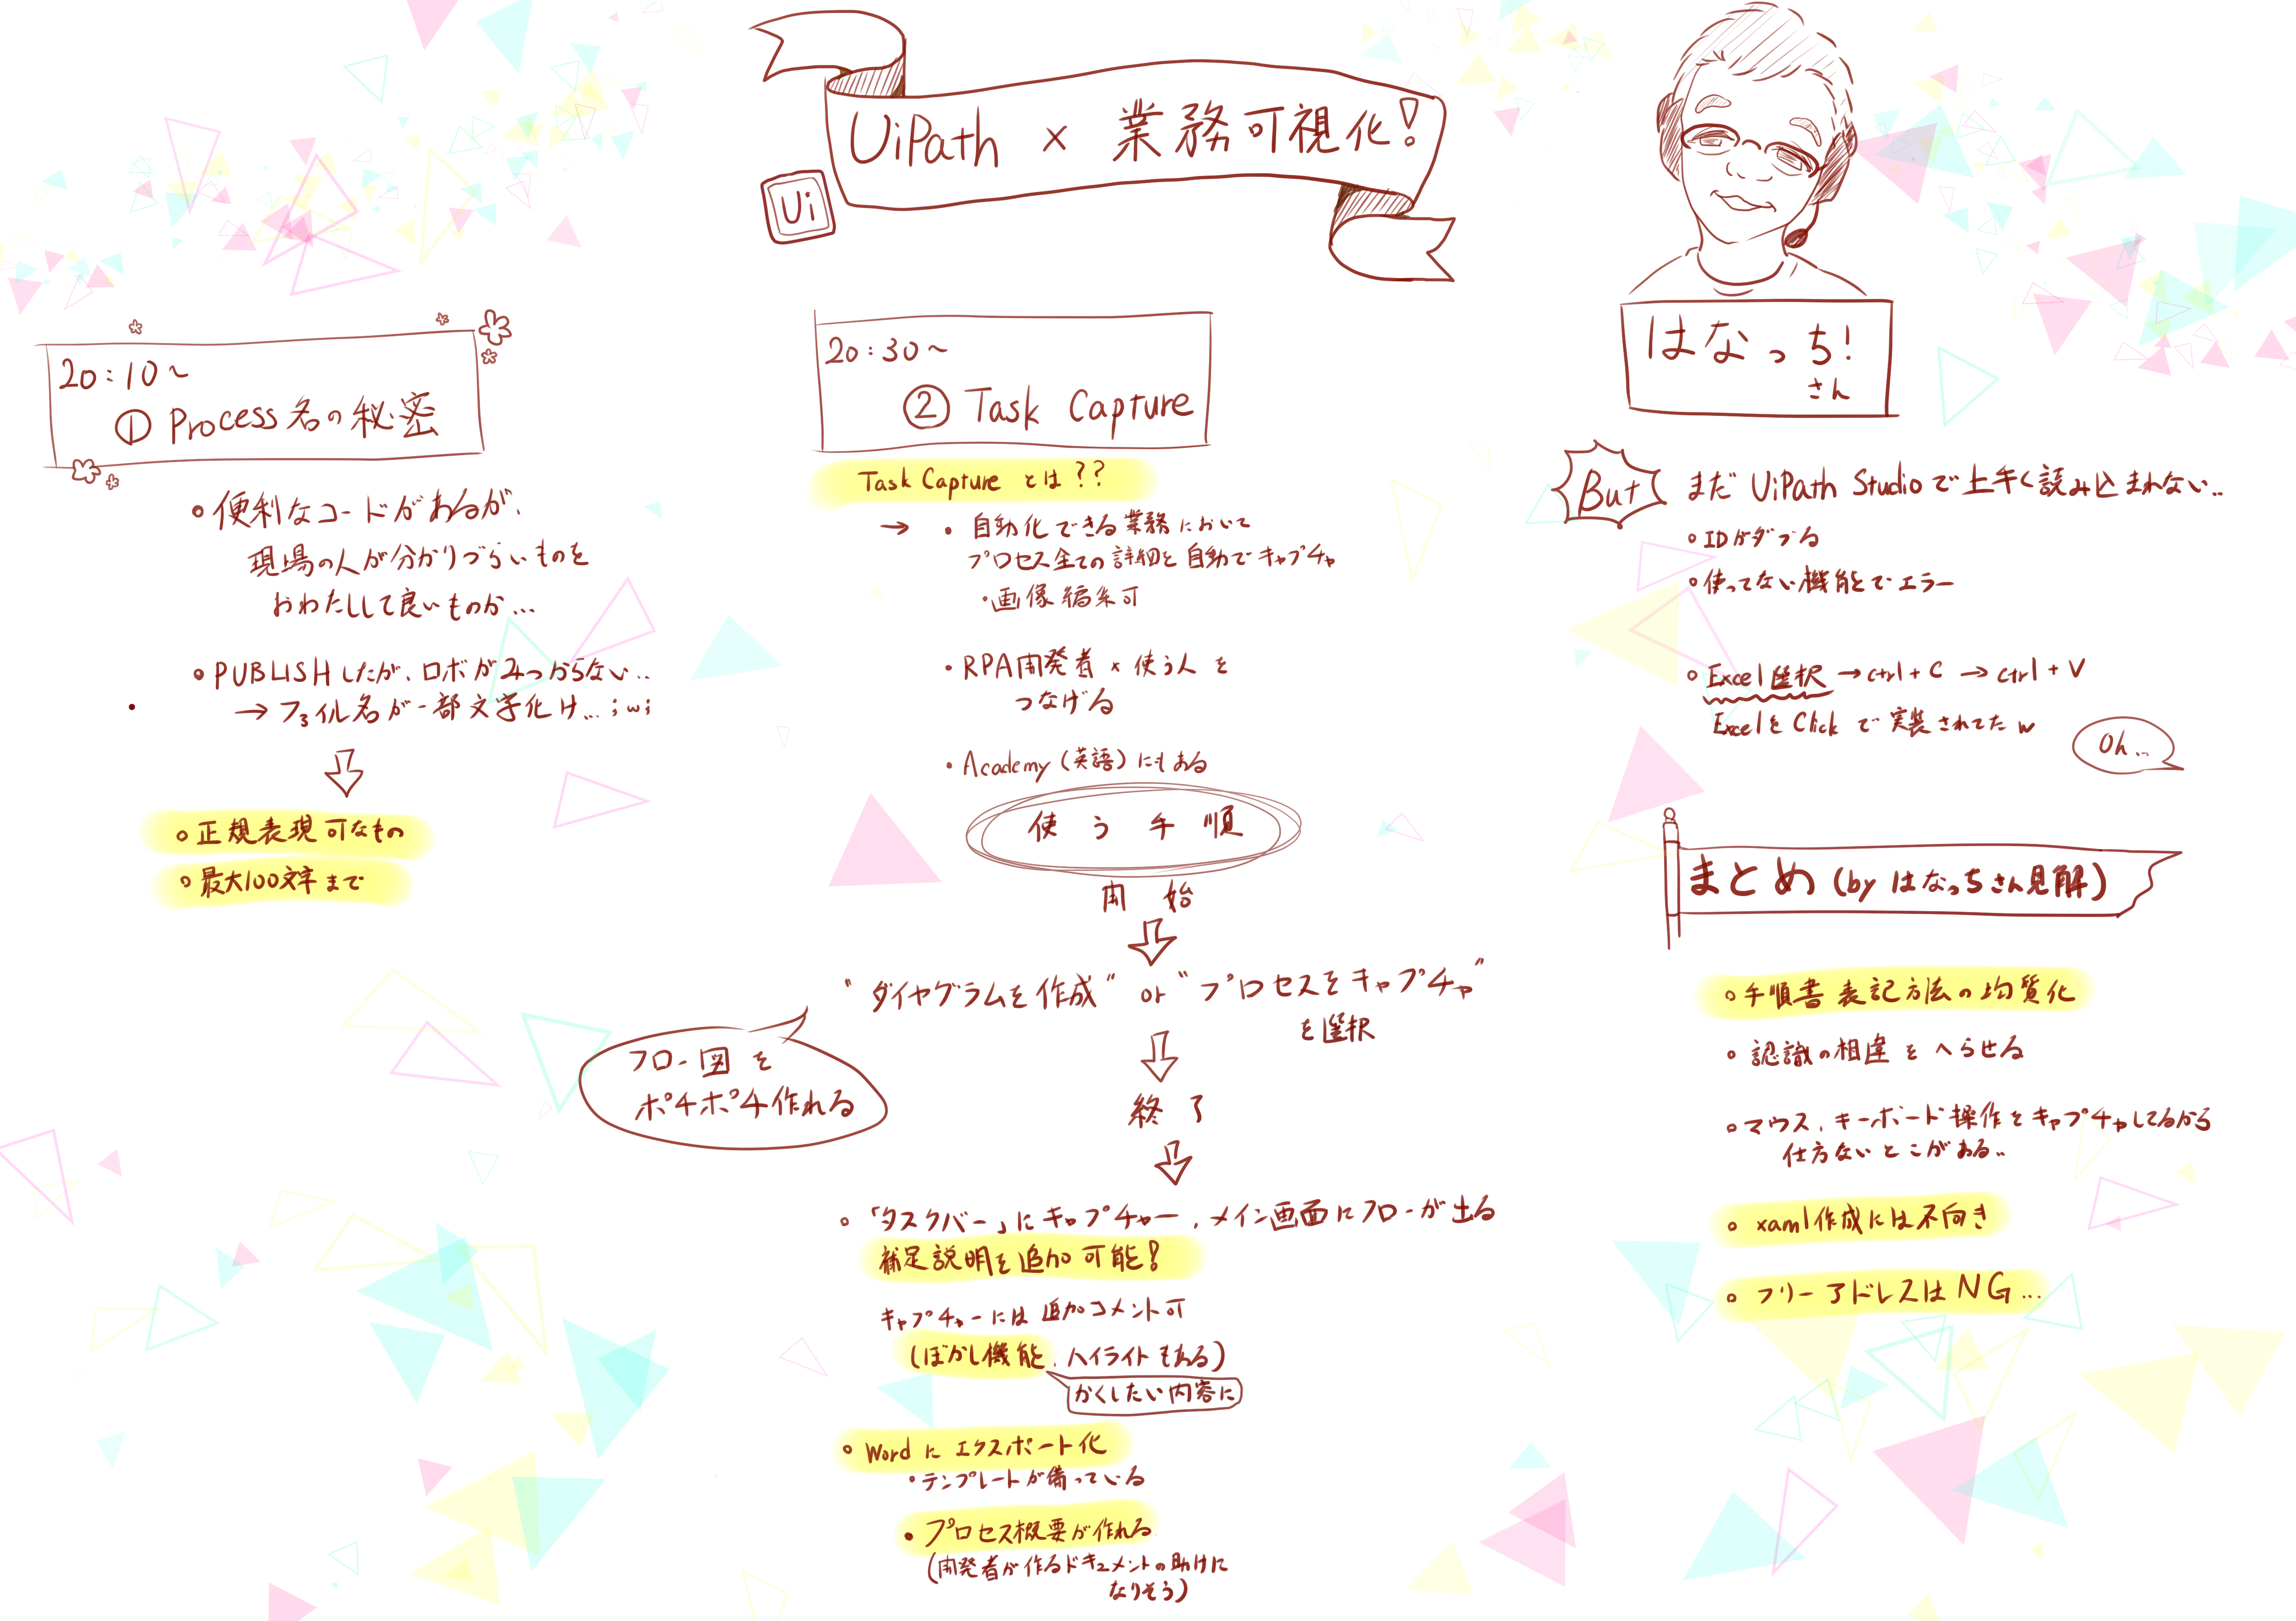 UiPath × 業務可視化!
Ui
20:10～
① Process名の秘密
○便利なコードがあるが、
現場の人が分かりづらいものを
おわたしして良いものか…
○PUBLISHしたが、ロボがみつからない..
→ファイル名が一部文字化け…;w;
○正規表現可なもの
○最大100文字まで
20:30～
② Task Capture
Task Capture とは??
→ ・自動化できる業務において
プロセス全ての詳細を自動でキャプチャ
・画像編集可
・RPA開発者×使う人を
つなげる
・Academy(英語)にもある
使う手順
開始
"ダイヤグラムを作成" or "プロセスをキャプチャ"
を選択
フロー図を
ポチポチ作れる
終了
○「タスクバー」にキャプチャー、メイン画面にフローが出る
補足説明を追加可能!
キャプチャーには追加コメント可
(ぼかし機能、ハイライトもある)
かくしたい内容に
○Wordにエクスポート化
・テンプレートが備っている
・プロセス概要が作れる
(開発者が作るドキュメントの助けに
なりそう)
はなっち!
さん
But
まだ UiPath Studioで上手く読み込まれない..
○IDがダブる
○使ってない機能でエラー
○Excel選択→ctrl+C→ctrl+V
ExcelをClickで実装されてたw
Oh...
まとめ(by はなっちさん見解)
○手順書表記方法の均質化
○認識の相違をへらせる
○マウス、キーボード操作をキャプチャしてるから
仕方ないとこがある..
○xaml作成には不向き
○フリーアドレスはNG…